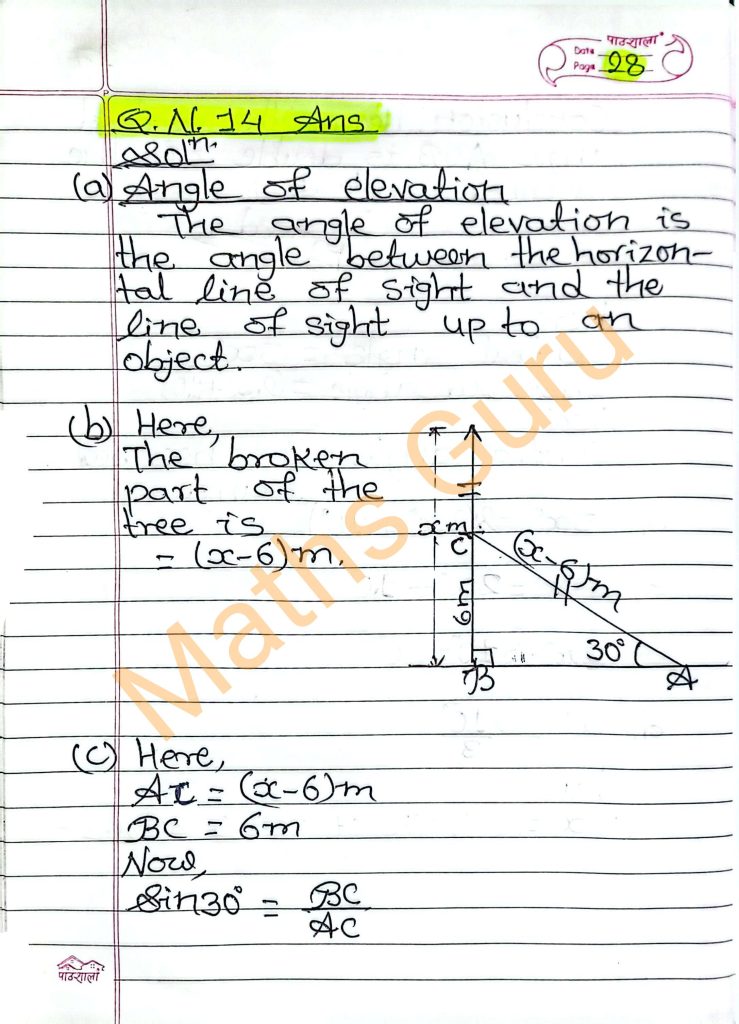 पाठशाला
Date
Page 28
Q.N. 14 Ans
Solⁿ.
(a) Angle of elevation
The angle of elevation is
the angle between the horizon-
tal line of sight and the
line of sight up to an
object.
(b) Here,
The broken
part of the
tree is
= (x-6)m.
x m
C
(x-6)m
6m
30°
B
A
(c) Here,
AC = (x-6)m
BC = 6m
Now,
Sin30° = BC/AC
Maths Guru
पाठशाला